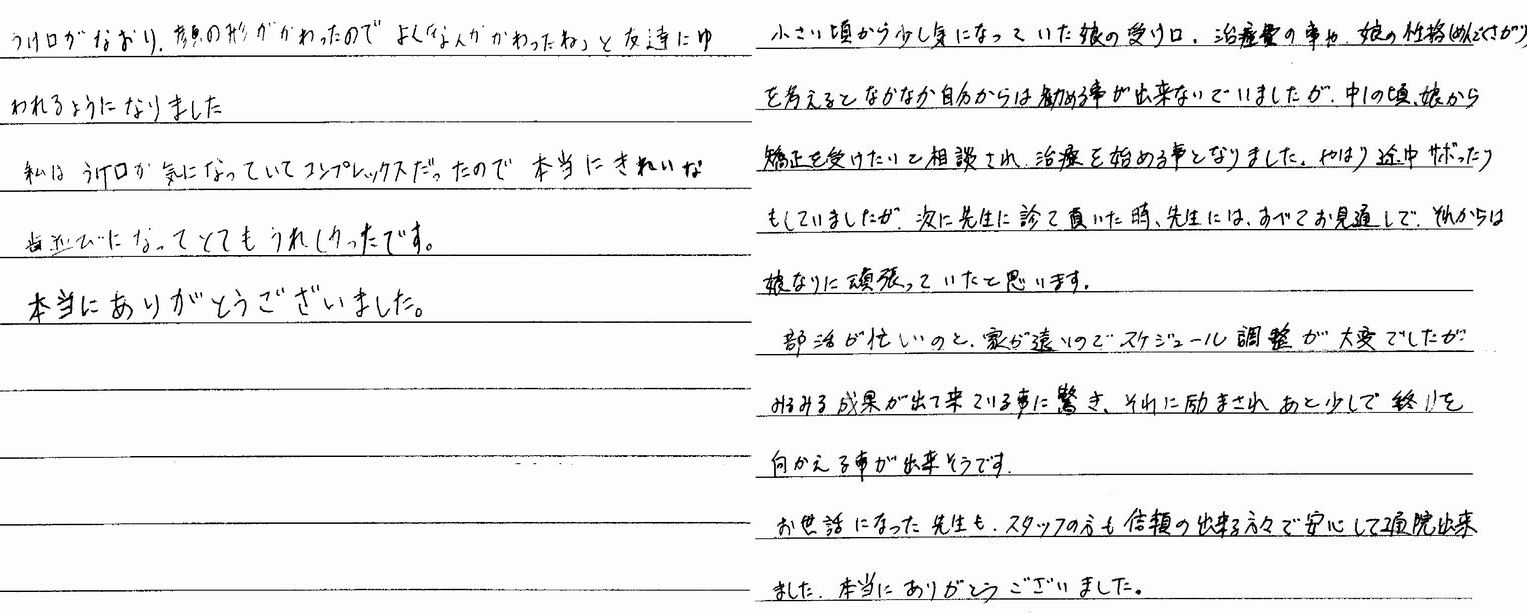 うけ口がなおり、顔の形がかわったのでよく「なんかかわったね」と友達にゆ
われるようになりました
私は うけ口が気になっていてコンプレックスだったので 本当にきれいな
歯並びになってとてもうれしかったです。
本当にありがとうございました。
小さい頃から少し気になっていた娘の受け口。治療費の事や、娘の性格(めんどくさがり)
を考えるとなかなか自分からは勧める事が出来ないでいましたが、中1の頃、娘から
矯正を受けたいと相談され、治療を始める事となりました。やはり途中サボったり
もしていましたが、次に先生に診て頂いた時、先生には、すべてお見通しで、それからは
娘なりに頑張っていたと思います。
部活が忙しいのと、家が遠いのでスケジュール調整が大変でしたが
みるみる成果が出て来ている事に驚き、それに励まされ あと少しで終りを
向かえる事が出来そうです。
お世話になった先生も、スタッフの方も信頼の出来る方々で安心して通院出来
ました。本当にありがとうございました。